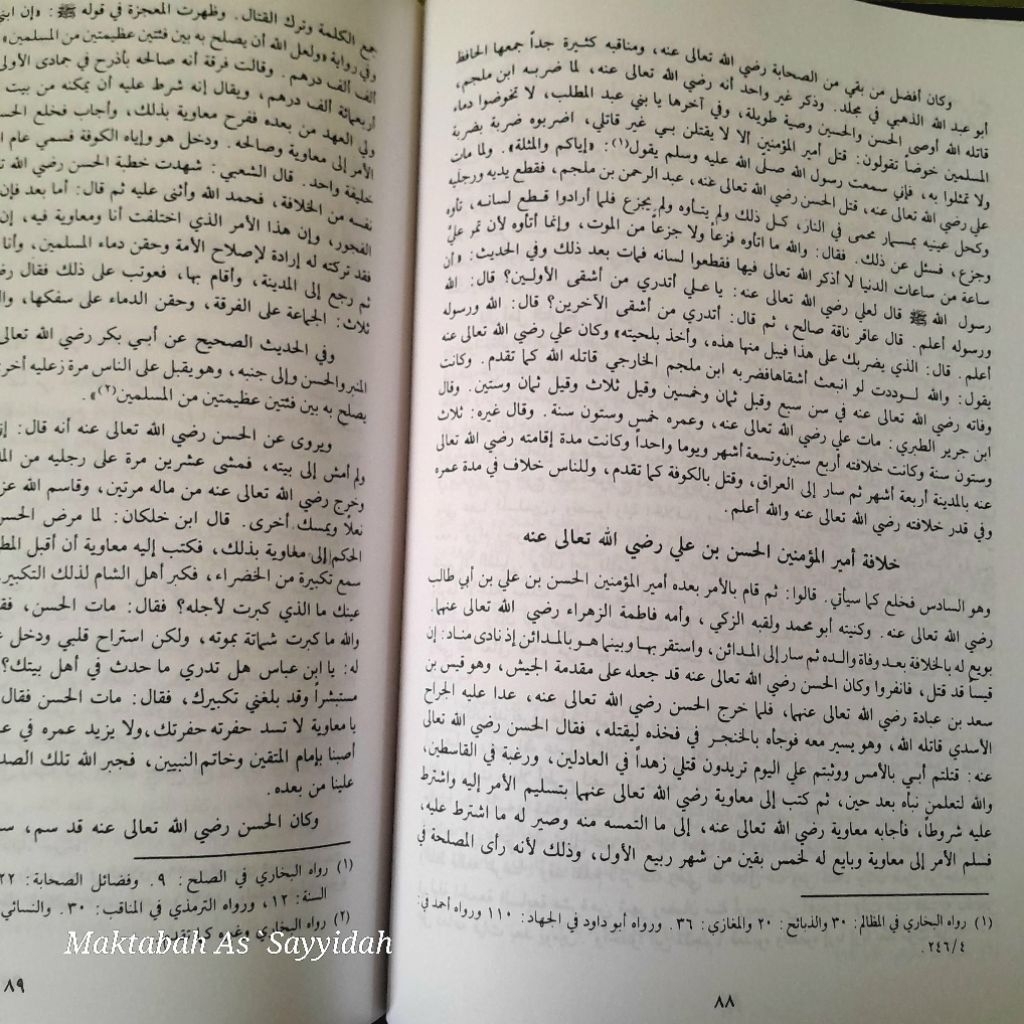 وكان أفضل من بقي من الصحابة رضي الله تعالى عنه، ومناقبه كثيرة جداً جمعها الحافظ
أبو عبد الله الذهبي في مجلد. وذكر غير واحد أنه رضي الله تعالى عنه، لما ضربه ابن ملجم،
قاتله الله أوصى الحسن والحسين وصية طويلة، وفي آخرها يا بني عبد المطلب، لا تخوضوا دماء
المسلمين خوضاً تقولون: قتل أمير المؤمنين ألا لا يقتلن بي غير قاتلي، اضربوه ضربة بضربة
ولا تمثلوا به، فإني سمعت رسول الله صلى الله عليه وسلم يقول(١): «إياكم والمثلة». ولما مات
علي رضي الله تعالى عنه، قتل الحسن رضي الله تعالى عنه، عبد الرحمن بن ملجم، فقطع يديه ورجليه
وكحل عينيه بمسمار محمى في النار، كل ذلك ولم يتأوه ولم يجزع فلما أرادوا قطع لسانه، تأوه
وجزع، فسئل عن ذلك. فقال: والله ما اتأوه فزعاً ولا جزعاً من الموت، وإنما أتأوه لأن تمر عليّ
ساعة من ساعات الدنيا لا أذكر الله تعالى فيها فقطعوا لسانه فمات بعد ذلك وفي الحديث: «أن
رسول الله ﷺ قال لعلي رضي الله تعالى عنه: يا علي أتدري من أشقى الأولين؟ قال: الله
ورسوله أعلم. قال عاقر ناقة صالح، ثم قال: أتدري من أشقى الآخرين؟ قال: الله ورسوله
أعلم. قال: الذي يضربك على هذا فيبل منها هذه، وأخذ بلحيته» وكان علي رضي الله تعالى عنه
يقول: والله لوددت لو انبعث أشقاها فضربه ابن ملجم الخارجي قاتله الله كما تقدم. وكانت
وفاته رضي الله تعالى عنه في سن سبع وقيل ثمان وخمسين وقيل ثلاث وقيل ثمان وستين. وقال
ابن جرير الطبري: مات علي رضي الله تعالى عنه، وعمره خمس وستون سنة. وقال غيره: ثلاث
وستون سنة وكانت خلافته أربع سنين وتسعة أشهر ويوما واحداً وكانت مدة إقامته رضي الله تعالى
عنه بالمدينة أربعة أشهر ثم سار إلى العراق، وقتل بالكوفة كما تقدم، وللناس خلاف في مدة عمره
وفي قدر خلافته رضي الله تعالى عنه والله أعلم.
خلافة أمير المؤمنين الحسن بن علي رضي الله تعالى عنه
وهو السادس فخلع كما سيأتي. قالوا: ثم قام بالأمر بعده أمير المؤمنين الحسن بن علي بن أبي طالب
رضي الله تعالى عنه. وكنيته أبو محمد ولقبه الزكي، وأمه فاطمة الزهراء رضي الله تعالى عنهما.
بويع له بالخلافة بعد وفاة والده ثم سار إلى المدائن، واستقر بها وبينما هو بالمدائن إذ نادى مناد: إن
قيسا قد قتل، فانفروا وكان الحسن رضي الله تعالى عنه قد جعله على مقدمة الجيش، وهو قيس بن
سعد بن عبادة رضي الله تعالى عنهما، فلما خرج الحسن رضي الله تعالى عنه، عدا عليه الجراح
الأسدي قاتله الله، وهو يسير معه فوجأه بالخنجر في فخذه ليقتله، فقال الحسن رضي الله تعالى
عنه: قتلتم أبي بالأمس ووثبتم علي اليوم تريدون قتلي زهداً في العادلين، ورغبة في القاسطين،
والله لتعلمن نبأه بعد حين، ثم كتب إلى معاوية رضي الله تعالى عنهما بتسليم الأمر إليه واشترط
عليه شروطاً، فأجابه معاوية رضي الله تعالى عنه، إلى ما التمسه منه وصير له ما اشترط عليه،
فسلم الأمر إلى معاوية وبايع له لخمس بقين من شهر ربيع الأول، وذلك لأنه رأى المصلحة في
(١) رواه البخاري في المظالم: ٣٠ والذبائح: ٢٠ والمغازي: ٣٦. ورواه أبو داود في الجهاد: ١١٠ ورواه أحمد في:
٢٤٦/٤.
٨٨
جمع الكلمة وترك القتال. وظهرت المعجزة في قوله ﷺ: «إن ابني
وفي رواية «ولعل الله أن يصلح به بين فئتين عظيمتين من المسلمين»
ألف ألف درهم. وقالت فرقة أنه صالحه بأذرح في جمادى الأولى
أربعمائة ألف درهم، ويقال إنه شرط عليه أن يمكنه من بيت
ولي العهد من بعده ففرح معاوية بذلك، وأجاب فخلع الحسن
الأمر إلى معاوية وصالحه. ودخل هو وإياه الكوفة فسمي عام
خليفة واحد. قال الشعبي: شهدت خطبة الحسن رضي الله
نفسه من الخلافة، فحمد الله وأثنى عليه ثم قال: أما بعد فإن
الفجور، وإن هذا الأمر الذي اختلفت أنا ومعاوية فيه، إن
فقد تركته له إرادة لإصلاح الأمة وحقن دماء المسلمين، وأنا
ثم رجع إلى المدينة، وأقام بها، فعوتب على ذلك فقال
ثلاث: الجماعة على الفرقة، وحقن الدماء على سفكها،
وفي الحديث الصحيح عن أبي بكر رضي الله تعالى
المنبر والحسن وإلى جنبه، وهو يقبل على الناس مرة وعليه
يصلح به بين فئتين عظيمتين من المسلمين(٢)».
ويروى عن الحسن رضي الله تعالى عنه أنه قال:
ولم أمش إلى بيته، فمشى عشرين مرة على رجليه من
وخرج رضي الله تعالى عنه من ماله مرتين، وقاسم الله
نعلا ويمسك أخرى. قال ابن خلكان: لما مرض الحسن
الحكم إلى معاوية بذلك، فكتب إليه معاوية أن أقبل
سمع تكبيرة من الخضراء، فكبر أهل الشام لذلك التكبير
عينك ما الذي كبرت لأجله؟ فقال: مات الحسن،
والله ما كبرت شماتة بموته، ولكن استراح قلبي ودخل
له: يا ابن عباس هل تدري ما حدث في أهل بيتك؟
مستبشراً وقد بلغني تكبيرك، فقال: مات الحسن فقال
يا معاوية لا تسد حفرته حفرتك، ولا يزيد عمره في
أصبنا بإمام المتقين وخاتم النبيين، فجبر الله تلك
علينا من بعده.
وكان الحسن رضي الله تعالى عنه قد سم،
(١) رواه البخاري في الصلح: ٩. وفضائل الصحابة: ٢٢
السنة: ١٢، ورواه الترمذي في المناقب: ٣٠. والنسائي
(٢) رواه البخاري وغيره كما تقدم
٨٩
Maktabah As 'Sayyidah